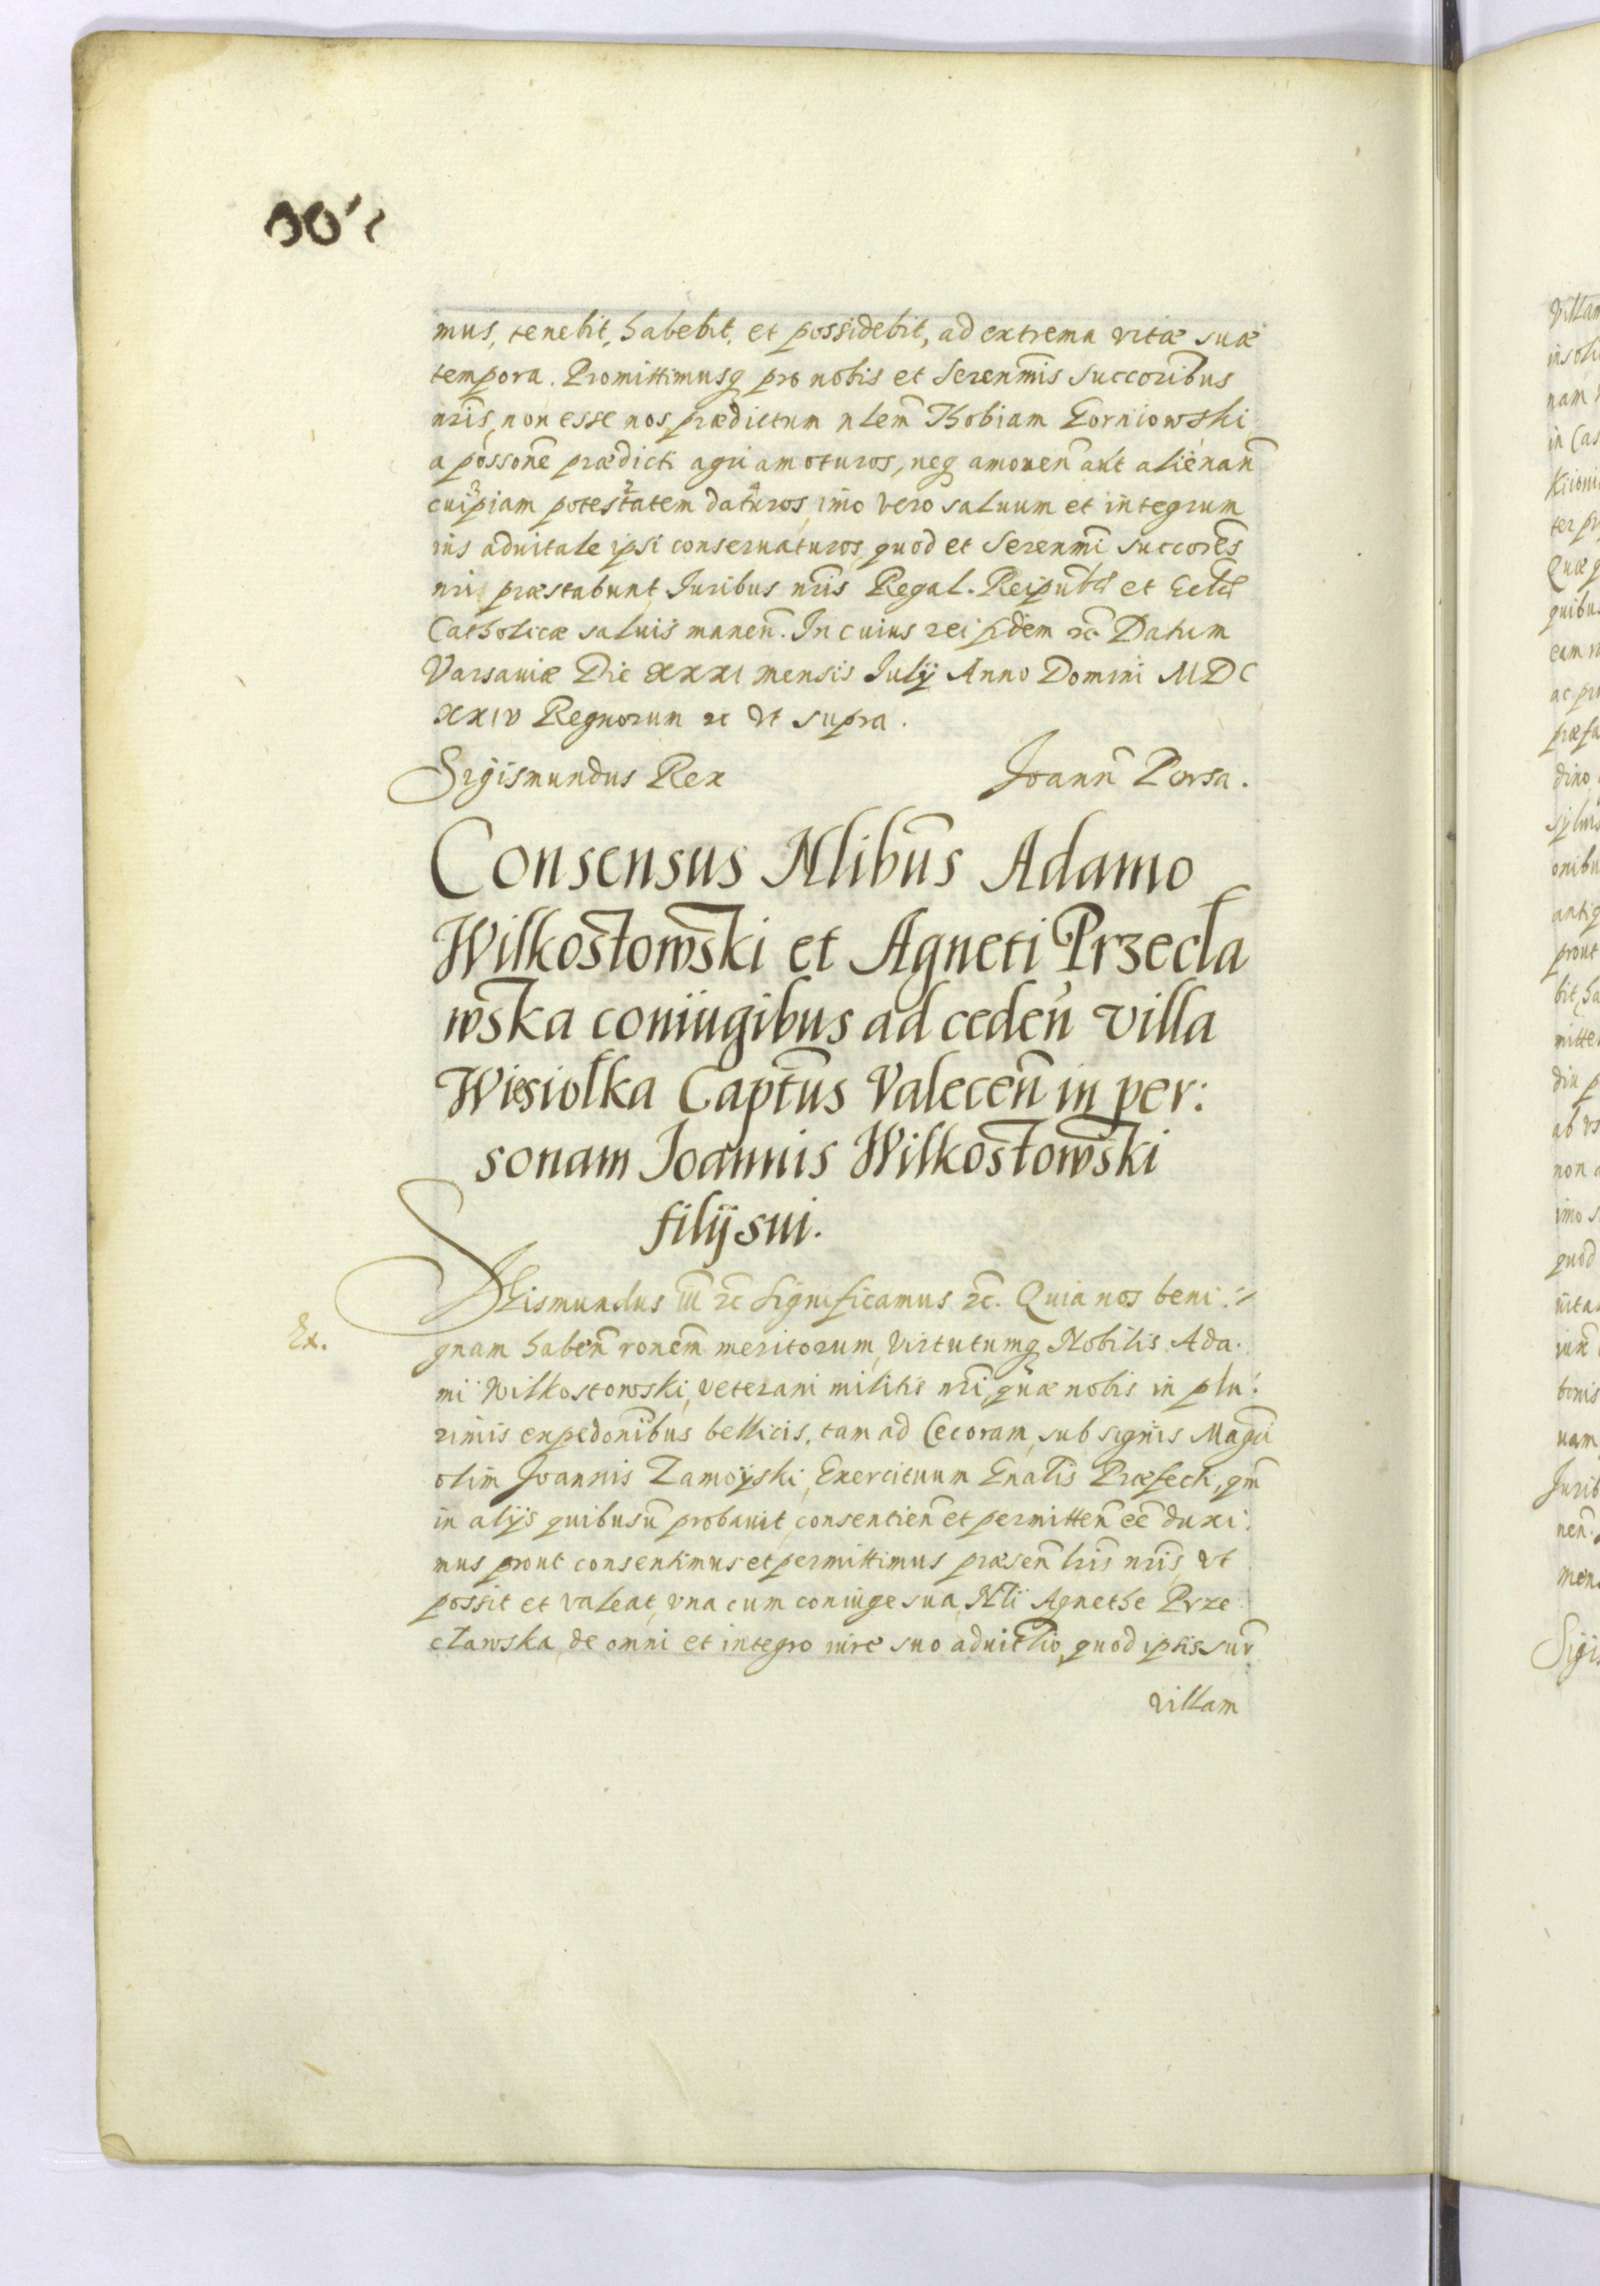 mus, tenebit, habebit, et possidebit, ad extrema vitæ suæ
tempora. Promittimusq pro nobis et Serenm̃is Succorib̃us
nr̃is, non esse nos prædictum nlem̃ Thobiam Gorniowski
a possone̴ prædicti agri amoturos, neq amouen̄ aut alienan̄
cuipiam potestatem daturos, imo vero saluum et integrum
ius aduitale ipsi conseruaturos, quod et Serenm̃i succores̃
nri præstabunt Juribus nr̃is Regal. Reipub̃ et Eccl̃
Catholicæ saluis manen̄. In cuius rei fidem ec̃ Datum
Varsauiæ Die XXXI mensis Julij Anno Domini MDC
XXIV Regnorum ec ut supra.
Sigismundus Rex Joann̄ Borsa.
Consensus Nlibus̄ Adamo
Wilkostowski et Agneti Przecła
wska coniugibus ad ceden̄ villa
Wiesiołka Capt̄us Valecen̄ in per:
sonam Joannis Wilkostowski
filij sui.
Sigismundus III ec̃ Significamus ec̃. Quia nos beni:
Ex.
gnam haben̄ ronem̃ meritorum, virtutumq Nobilis Ada.
mi Wilkostowski, veterani militis nr̃i, quæ nobis in plu:
rimis expedonibus̃ bellicis, tam ad Cecoram, sub signis Magci
olim Joannis Zamoyski, Exercituum Gnalis̃ Præfecti, qm̃
in alijs quibusuis̃ probauit, consentien̄ et permitten̄ ec̃ duxi:
mus prout consentimus et permittimus præsen̄ lris̃ nr̃is, ut
possit et valeat, vna cum coniuge sua, Nli Agnethe Prze
cławska, de omni et integro iure suo aduit̄lio, quod ipsis sur̄
villam